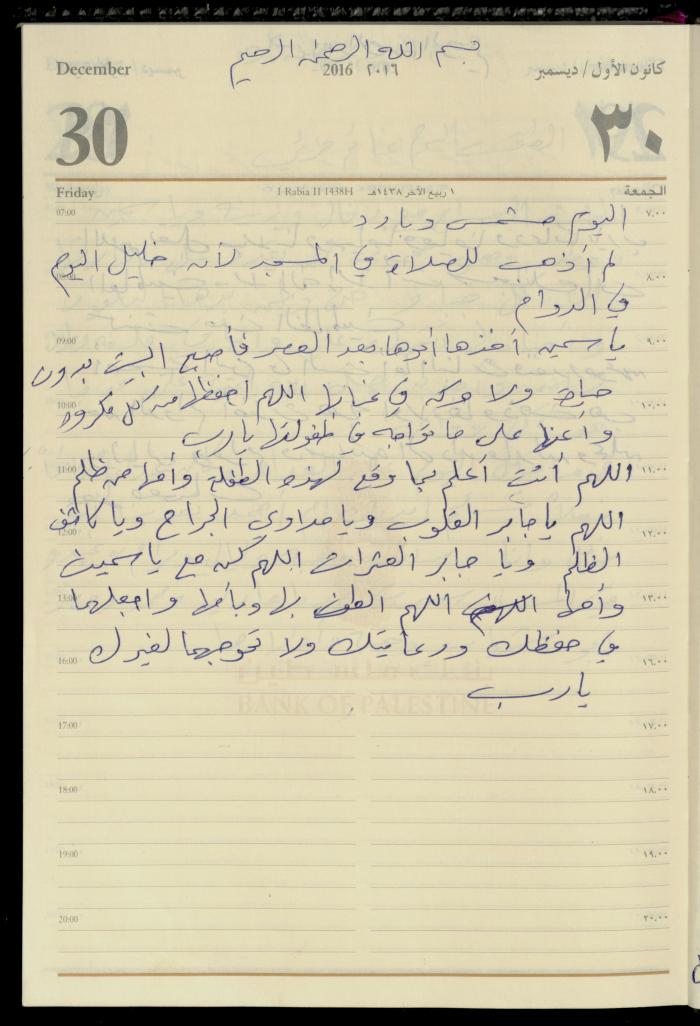 بسم الله الرحمن الرحيم
December 2016 ٢٠١٦ كانون الأول / ديسمبر
30 ٣٠
Friday 1 Rabia II 1438H ١ ربيع الآخر ١٤٣٨هـ الجمعة
07:00 اليوم مشمس وبارد ٧،٠٠
لم أذهب للصلاة في المسجد لأن خليل اليوم ٨،٠٠
في الدوام
09:00 ياسمين أخذها أبوها بعد العصر فأصبح البيت بدون ٩،٠٠
10:00 حياة ولا حركة في غيابها اللهم احفظها من كل مكروه ١٠،٠٠
وأعنها على ما تواجه في طفولتها يارب
11:00 اللهم أنت أعلم بما وقع لهذه الطفلة وأمها من ظلم ١١،٠٠
12:00 اللهم يا جابر القلوب ويا مداوي الجراح ويا كاشف ١٢،٠٠
الظلم ويا جابر العثرات اللهم كن مع ياسمين
13:00 وأمها اللهم الطف بها وبأمها واجعلهما ١٣،٠٠
في حفظك ورعايتك ولا تحوجهما لغيرك
16:00 ١٦،٠٠
يارب
BANK OF PALESTINE
17:00 ١٧،٠٠
18:00 ١٨،٠٠
19:00 ١٩،٠٠
20:00 ٢٠،٠٠